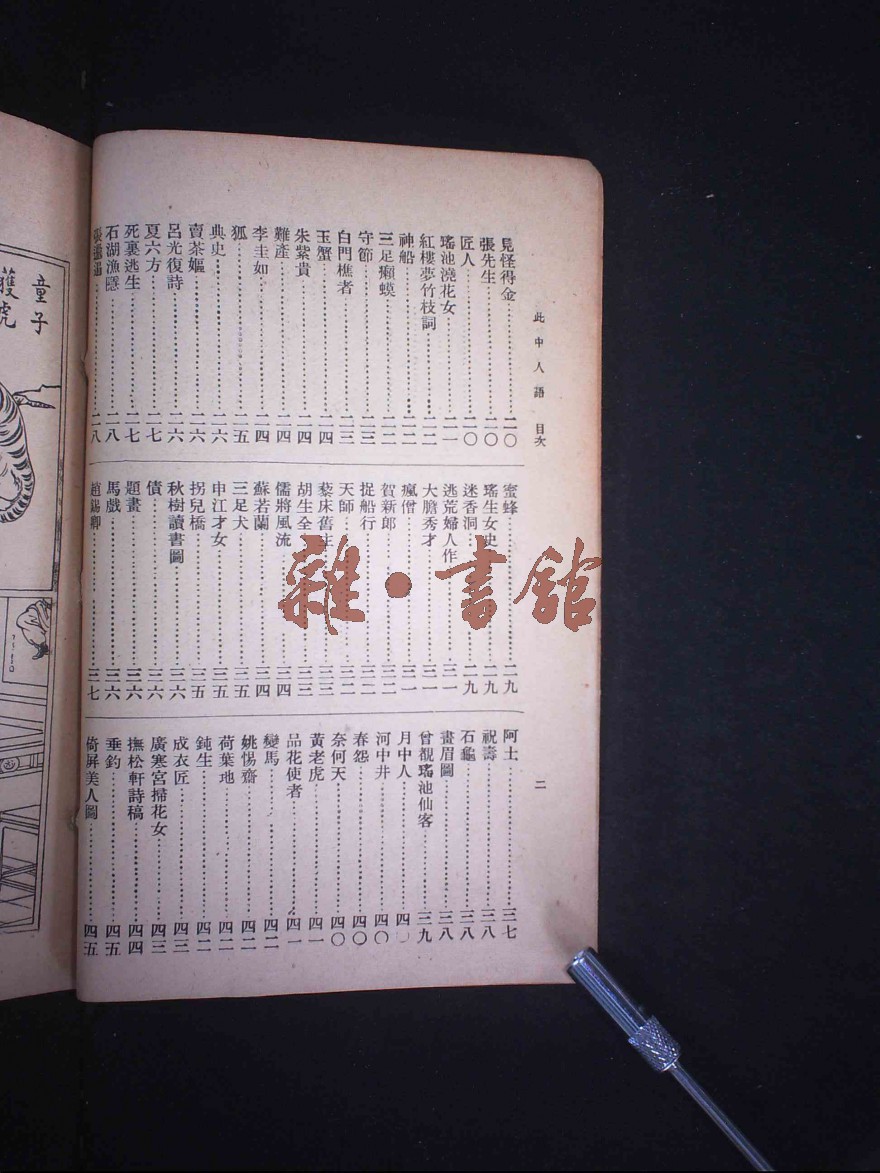 此中人語 目次
二
見怪得金……二〇
張先生……二〇
匠人……二〇
瑤池澆花女……二一
紅樓夢竹枝詞……二二
神船……二二
三足癩蟆……二二
守節……二三
白門樵者……二三
玉蟹……二四
朱紫貴……二四
難產……二四
李圭如……二四
狐……二五
典史……二六
賣茶嫗……二六
呂光復詩……二六
夏六方……二七
死裏逃生……二七
石湖漁隱……二八
張……二八
蜜蜂……二九
瑤生女史……二九
迷香洞……二九
逃荒婦人作……三一
大膽秀才……三一
瘋僧……三一
賀新郎……三二
捉船行……三二
天師……三二
藜床舊主……三三
胡生全……三三
儒將風流……三四
蘇若蘭……三四
三足犬……三五
申江才女……三五
拐兒橋……三五
秋樹讀書圖……三六
債……三六
題畫……三六
馬戲……三六
趙錫卿……三七
阿土……三七
祝壽……三八
石龜……三八
畫眉圖……三八
曾觀瑤池仙客……三九
月中人……四〇
河中井……四〇
春怨……四〇
奈何天……四〇
黃老虎……四一
品花使者……四一
變馬……四二
姚惕齋……四二
荷葉地……四二
鈍生……四二
成衣匠……四三
廣寒宮掃花女……四三
撫松軒詩稿……四四
垂釣……四五
倚屏美人圖……四五
童子
獲虎
雜·書館